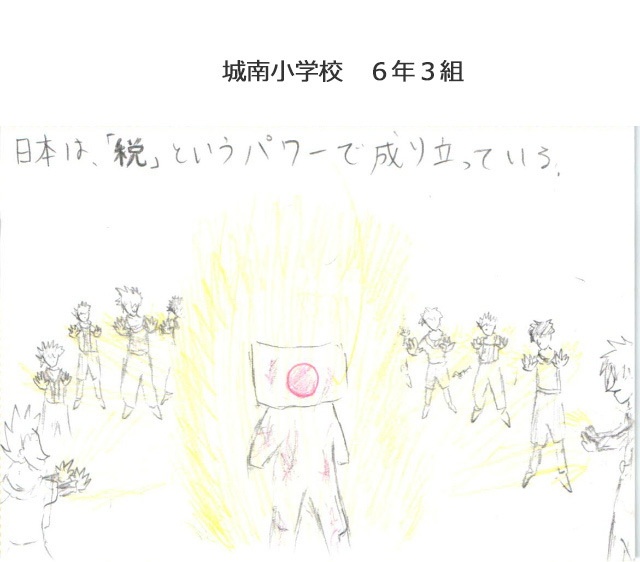 城南小学校　６年３組
日本は、「税」というパワーで成り立っている。